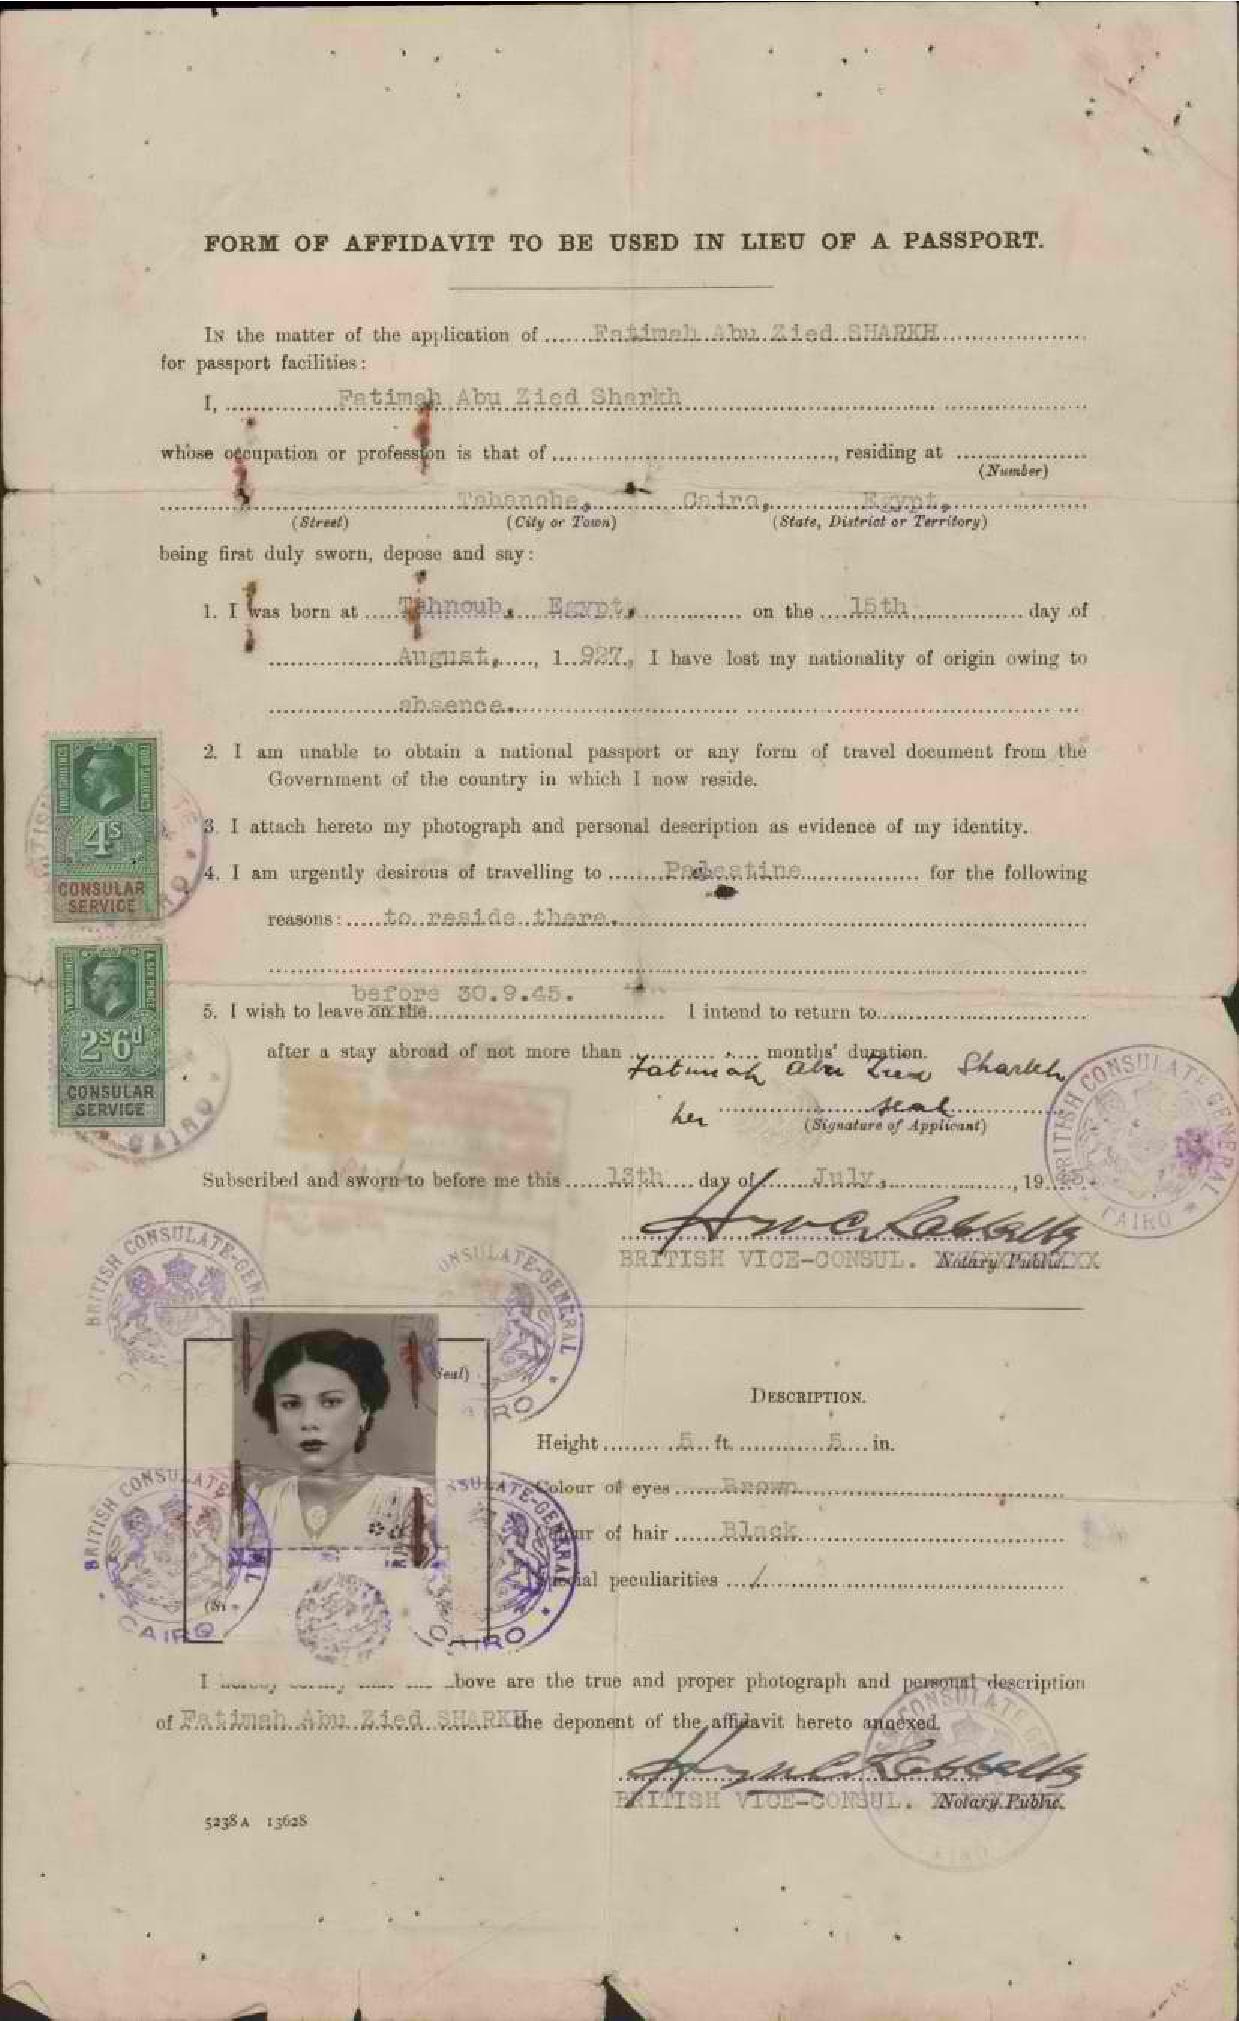 FORM OF AFFIDAVIT TO BE USED IN LIEU OF A PASSPORT.
IN the matter of the application of Fatimah Abu Zied SHARKH
for passport facilities:
I, Fatimah Abu Zied Sharkh
whose occupation or profession is that of , residing at
(Number)
Tahanohe, Cairo, Egypt,
(Street) (City or Town) (State, District or Territory)
being first duly sworn, depose and say:
1. I was born at Tahnoub, Egypt, on the 15th day of
August, , 1 927, I have lost my nationality of origin owing to
absence.
2. I am unable to obtain a national passport or any form of travel document from the
Government of the country in which I now reside.
3. I attach hereto my photograph and personal description as evidence of my identity.
4. I am urgently desirous of travelling to Palestine for the following
reasons: to reside there.
before 30.9.45.
5. I wish to leave on the I intend to return to
after a stay abroad of not more than months' duration.
Fatimah Abu Zied Sharkh
her seal
(Signature of Applicant)
Subscribed and sworn to before me this 13th day of July, , 19
BRITISH VICE-CONSUL. Notary Public.
4s
CONSULAR
SERVICE
2s6d
CONSULAR
SERVICE
CAIRO
BRITISH CONSULATE-GENERAL
CAIRO
BRITISH CONSULATE-GENE
ONSULATE-GENERAL
RO
Seal)
DESCRIPTION.
Height 5 ft. 5 in.
Colour of eyes Brown
of hair Black
peculiarities /
BRITISH CONSULATE
CAIRO
SULATE-GENERAL
CAIRO
I hereby certify that the above are the true and proper photograph and personal description
of Fatimah Abu Zied SHARKH the deponent of the affidavit hereto annexed.
BRITISH VICE-CONSUL. Notary Public.
5238 A 13628